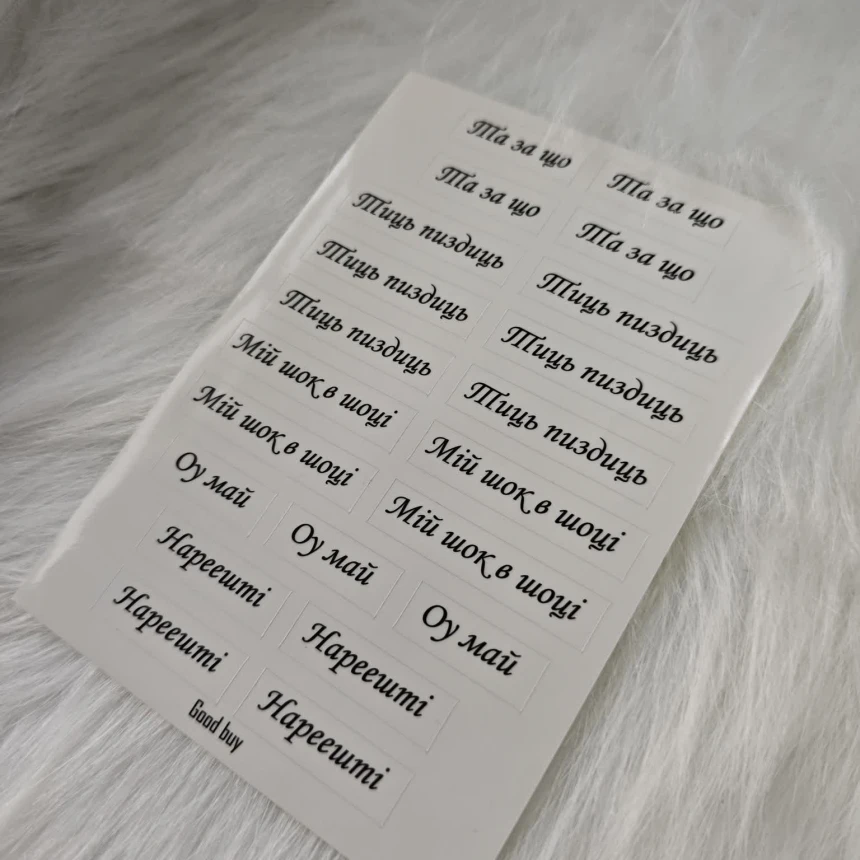 Та за що Та за що
Та за що Та за що
Тиць пиздиць Тиць пиздиць
Тиць пиздиць Тиць пиздиць
Тиць пиздиць Тиць пиздиць
Мій шок в шоці Мій шок в шоці
Мій шок в шоці Мій шок в шоці
Оу май Оу май Оу май
Нареешті Нареешті
Нареешті Нареешті
Good buy